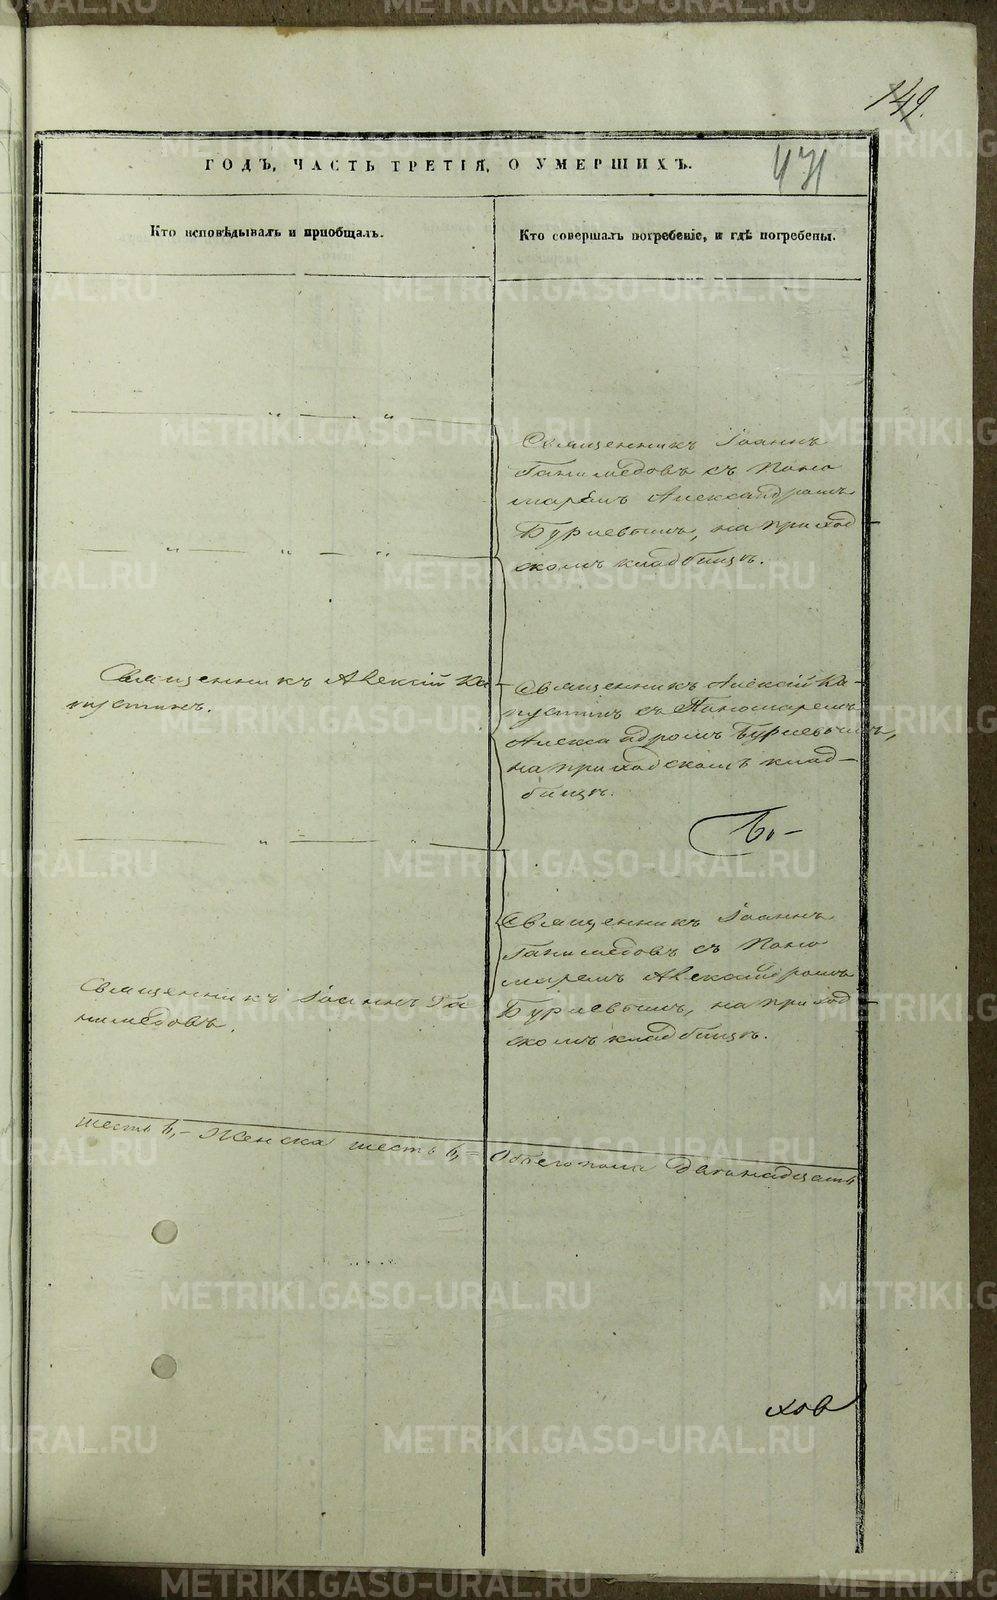 149.
ГОДЪ, ЧАСТЬ ТРЕТІЯ, О УМЕРШИХЪ.
471
Кто исповѣдывалъ и пріобщалъ.
Кто совершалъ погребеніе, и гдѣ погребены.
Священникъ Іоаннъ
Ганимедовъ съ Поно
маремъ Александромъ
Бурлевымъ, на приход
скомъ кладбищѣ.
Священникъ Алексій Ка-
пустинъ.
Священникъ Алексій Ка-
пустинъ съ Пономаремъ
Александромъ Бурлевымъ,
на приходскомъ клад-
бищѣ.
Во-
Священникъ Іоаннъ
Ганимедовъ съ Поно
маремъ Александромъ
Бурлевымъ, на приход
скомъ кладбищѣ.
Священникъ Іоаннъ Га
нимедовъ.
шесть 6,- Женска шесть 6,- Обоего пола двенадцать
хов
METRIKI.GASO-URAL.RU